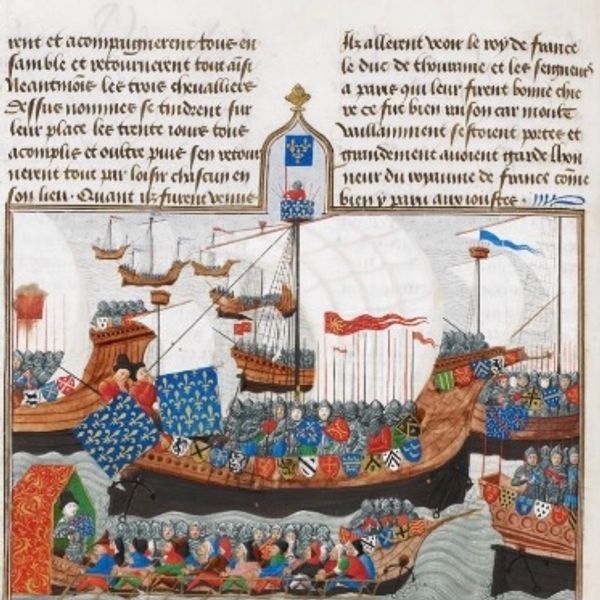 rent et acompagnerent tous en
samble et retournerent tout ainsi
Neantmois les trois chevalliers
dessus nommes se tindrent sur
leur place les trente iours tous
acomplis et oultre puis sen retour
nerent tout par loisir chascun en
son lieu. Quant ilz furent venus
Ilz allerent veoir le roy de france
le duc de thouraine et les seigneurs
a paris qui leur firent bonne chie
re ce fut bien raison car moult
vaillamment sestoient portes et
grandement avoient garde lhon
neur du royaume de france come
bien y paru aux ioustes.